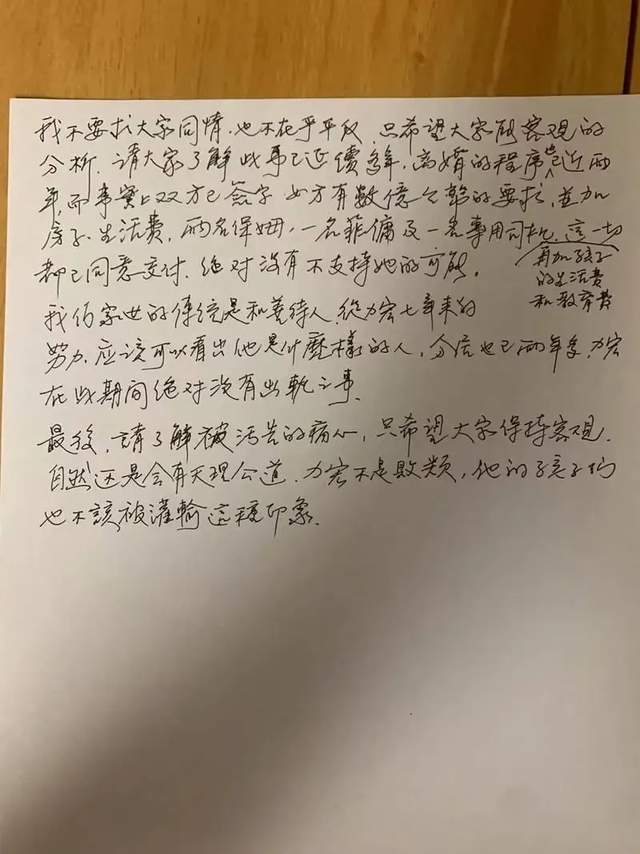 我不要求大家同情.也不在乎平反.只希望大家能客观的
分析.請大家了解此事已延續多年.离婚的程序已近两
年,而事實上双方已簽字.女方有數億金錢的要求,並加
房子.生活費,兩名保姆,一名菲傭及一名專用司机.這一切
再加孩子
的生活费
和教育费
都已同意交付.绝对沒有不支持她的可能.
我們家世的傳統是和善待人.從力宏七年來的
努力.应該可以看出他是什麼樣的人,分居也已兩年多.力宏
在此期间绝对沒有出軌之事.
最後,請了解被污告的痛心,只希望大家保持客观.
自然还是会有天理公道.力宏不是敗類,他的孩子们
也不該被灌輸這種印象.